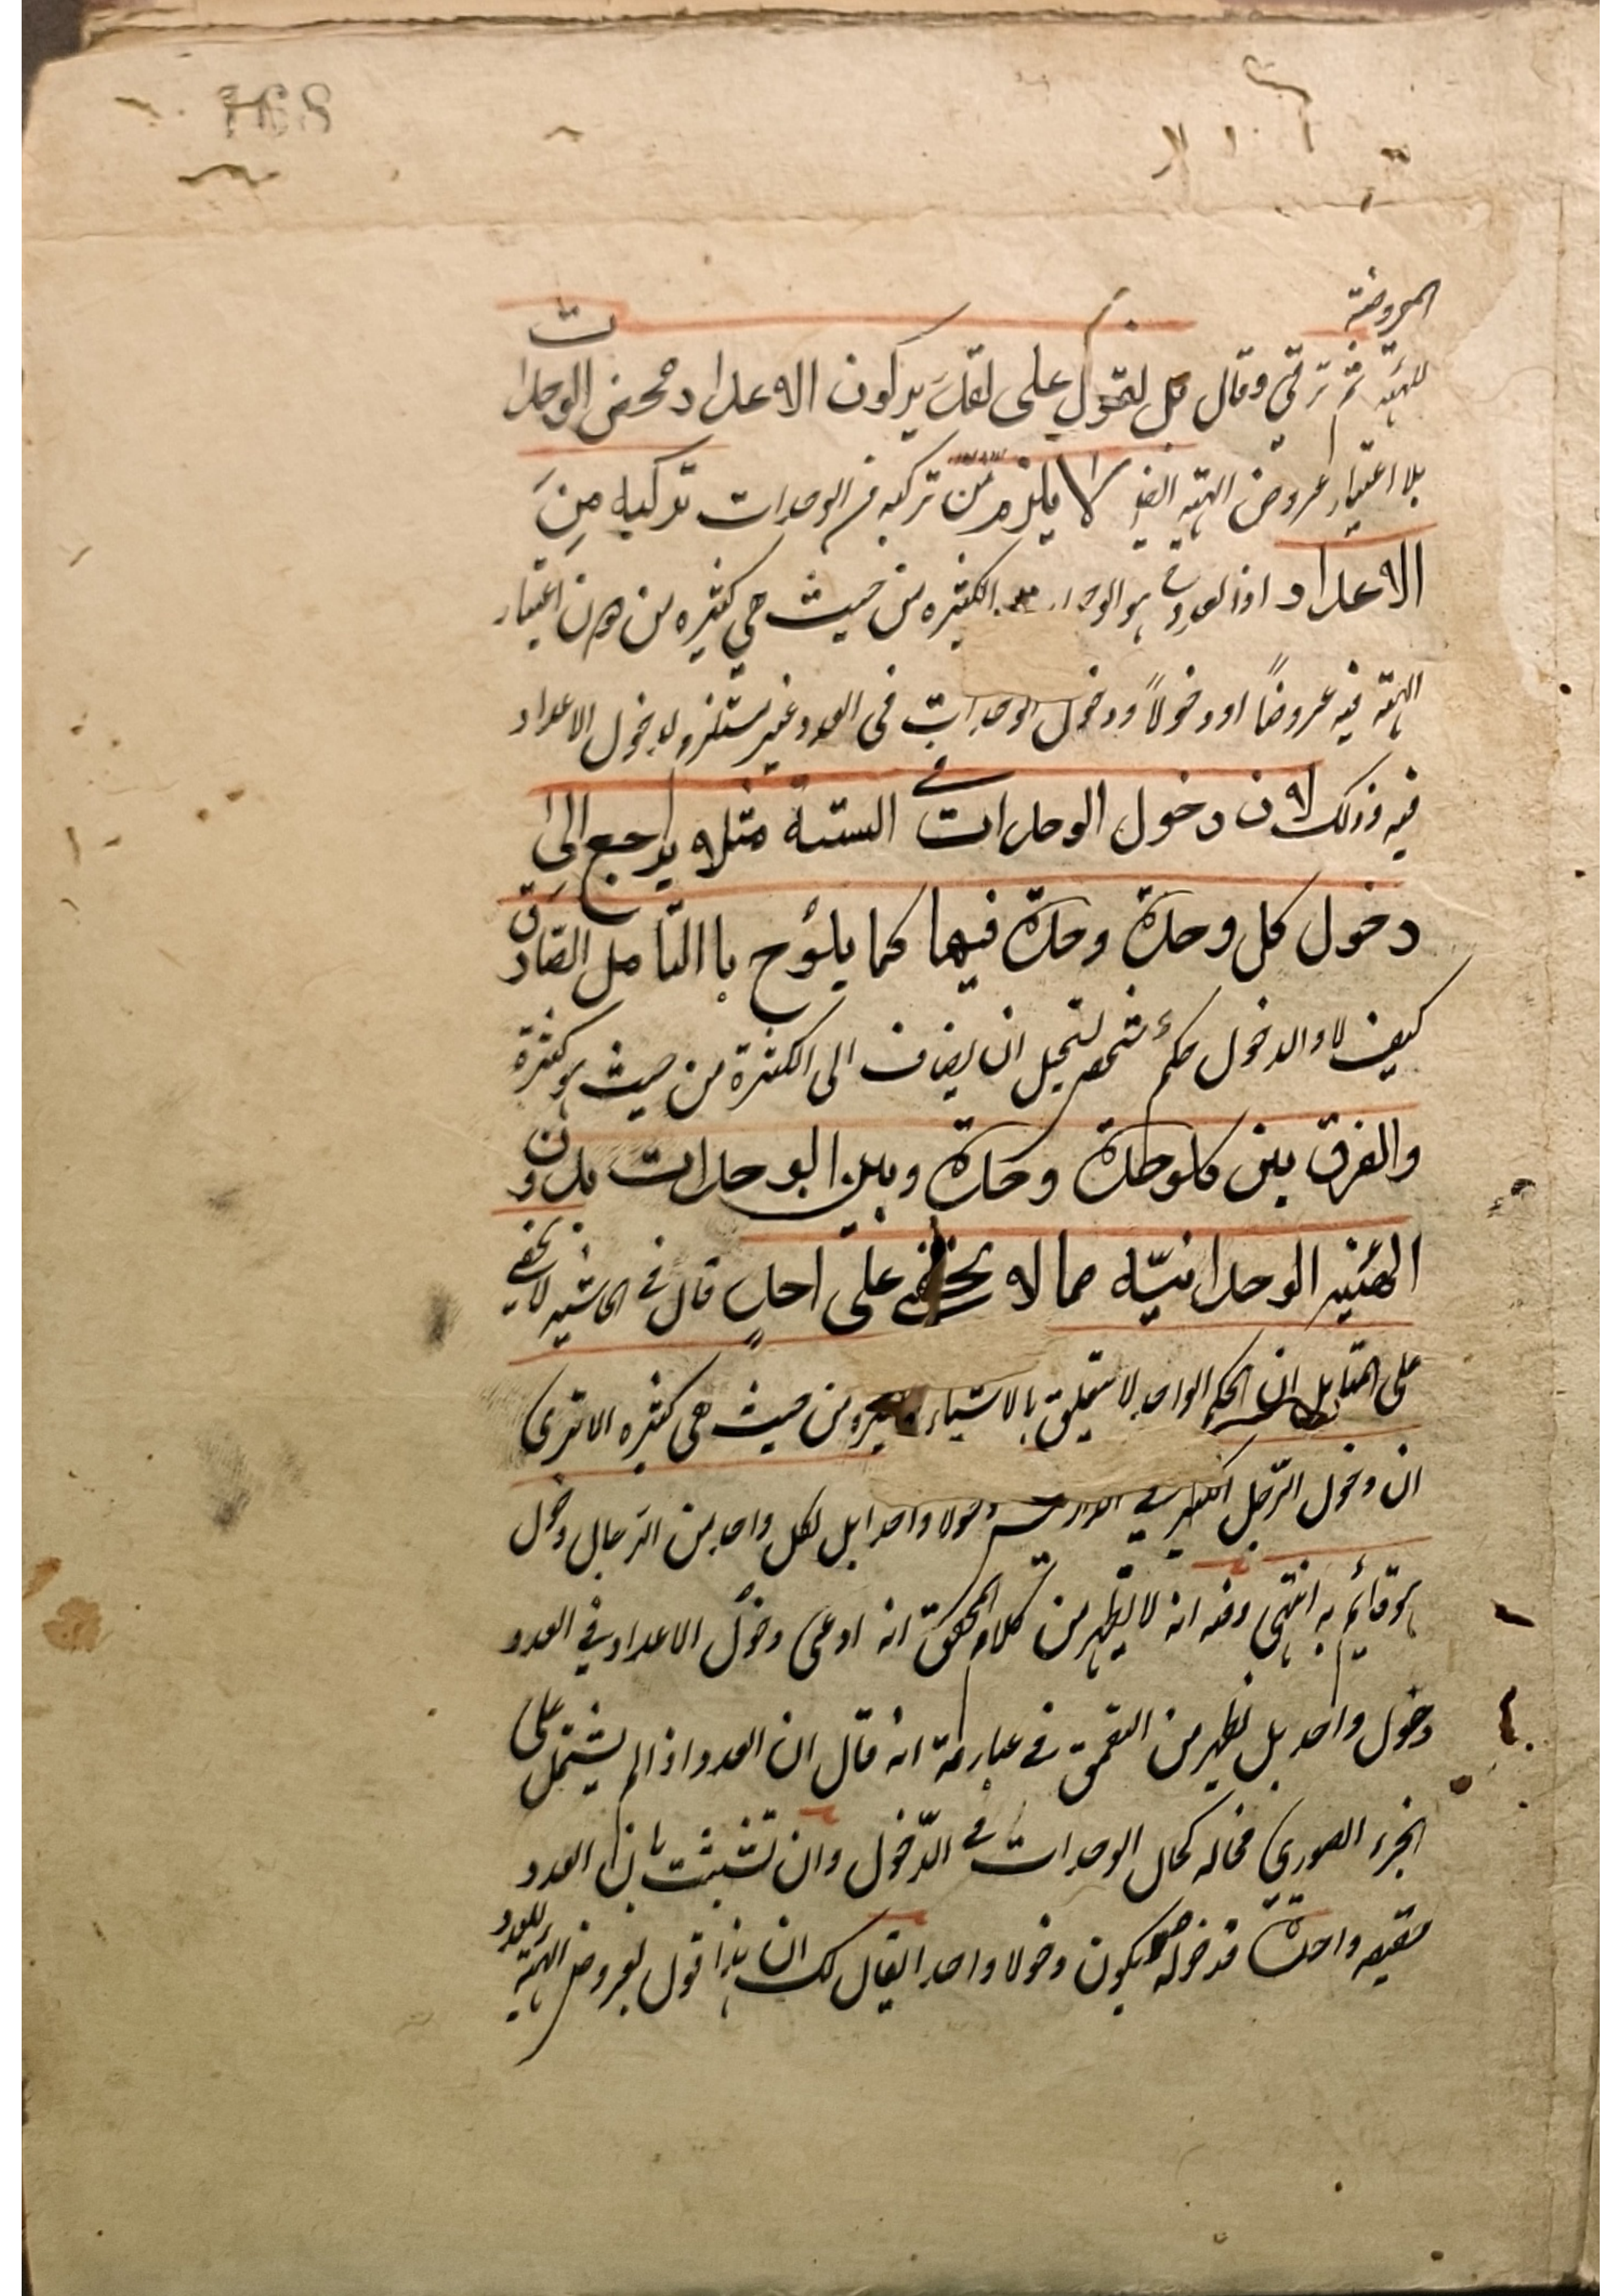 المعروضة
للهيئة ثم ترقى وقال بل نقول على تقدير كون الاعداد محض الوحدات
بلا اعتبار عروض الهيئة ايضا لا يلزم من تركبه من الوحدات تركبه من
الاعداد اذ العدد ح هو الوحدات الكثيره من حيث هي كثيره من دون اعتبار
الهيئة فيه عروضًا او دخولاً ودخول الوحدات في العدد غير مستلزم لدخول الاعداد
فيه وذلك لان دخول الوحدات في الستة مثلا يرجع الى
دخول كل وحدة وحدة فيها كما يلوح باالتامل الصادق
كيف لا والدخول حكم شخصي يستحيل ان يضاف الى الكثرة من حيث هو كثرة
والفرق بين كل وحدة وحدة وبين الوحدات بدون
الهئية الوحدانيّه مما لا يخفى على احدٍ قال في الحاشيه لا يخفى
على المتامل ان الحكم الواحد لا يتعلق بالاشياء الكثيره من حيث هى كثيره الا ترى
ان دخول الرّجل الكثير في الدار ليس دخولا واحدا بل لكل واحد من الرجال دخول
هو قائم به انتهى وفيه انه لا يظهر من كلام المحقق انه ادعى دخول الاعداد في العدد
دخول واحد بل يظهر من التعمق في عبارته انه قال ان العدد اذا لم يشتمل على
الجزء الصوري فحاله كحال الوحدات في الدّخول وان تشبث بان العدد
حقيقه واحدة فدخوله يكون دخولا واحدا يقال لك ان هذا قول بعروض الهيئة للعدد